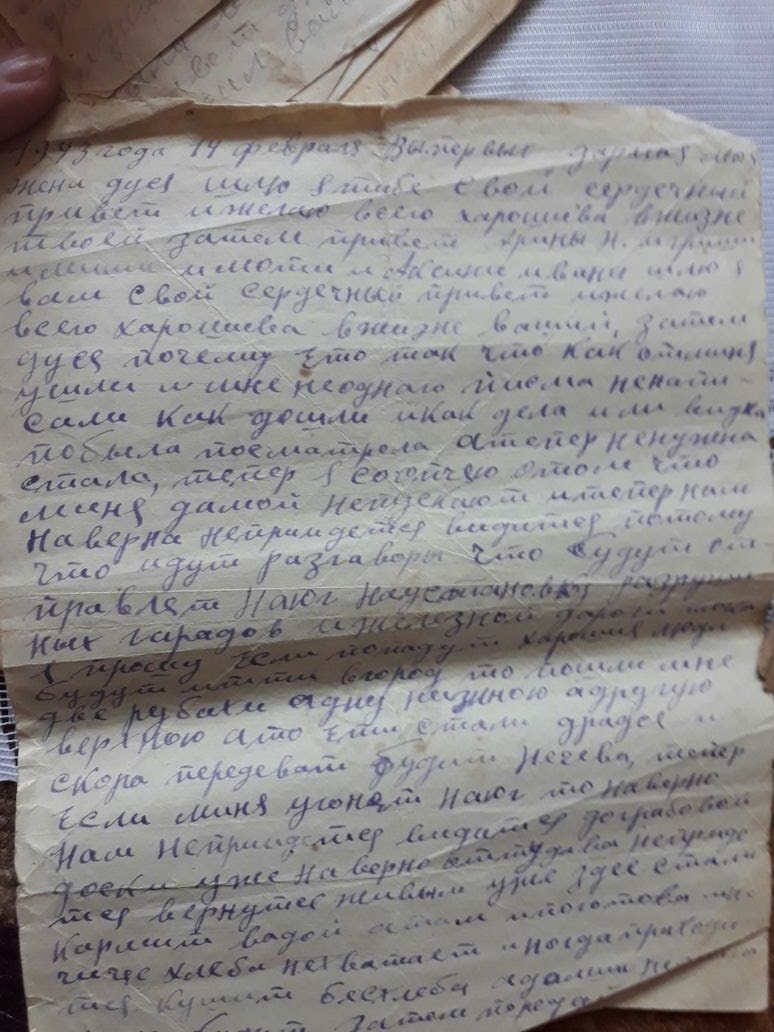 1943 года 14 февраля Выпервых дарагая мая
жена дуся шлю я тибе свой сердечный
привет ижелаю всего харошева вжизне
твоей затем привет Арины Н.
имиши имоти и Аксинье ивани шлю я
вам свой сердечный привет ижелаю
всего харошева вжизне вашей, затем
дуся почему ето так что как отминя
ушли и мне неоднаго писма ненапи-
сали как дошли икак дела или
побыла посматрела атепер ненужена
стала, тепер я сообчею отом что
миня дамой непускают итепер нам
наверна непридетса видитса потому
что идут разгаворы что будут от
правлят наюг наустановку разруши
ных гарадов ижелезной дароги
я прошу если попадут харошия люди
будут итти вгород то пошли мне
две рубахи адну нижною адругую
верхною ато ети стали дратся и
скора передеват будит нечева, тепер
если миня угонят наюг то наверно
нам непридетса видитса дограбовой
доски уже наверно оттудава непридё
тса вернутса живым уже здес стали
кармит вадой атам ипоготову
хлеба нехватает иногда приходи
тса кушит бесхлеба
затем